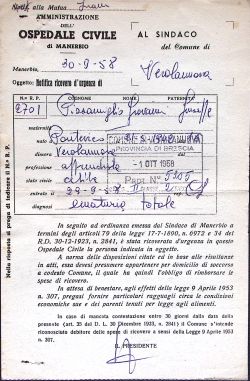 AMMINISTRAZIONE
DELL'
OSPEDALE CIVILE
DI MANERBIO
AL SINDACO
del Comune di
Manerbio, 30-9-58
Verolanuova
Oggetto: Notifica ricovero d'urgenza di
N° R. P.
COGNOME NOME PATERNITÀ
2701
Giovanni Giuseppe
maternità
nato Pontevico
PROVINCIA DI BRESCIA
domicilio Verolanuova
1 OTT 1958
professione
stato civile
Prot. N° 5205
29-9-58
ematuria totale
Nella risposta si prega di indicare il N° R P.
In seguito ad ordinanza emessa dal Sindaco di Manerbio a
termini degli articoli 79 della legge 17-7-1890, n. 6972 e 34 del
R.D. 30-12-1923, n. 2841, è stata ricoverata d'urgenza in questo
Ospedale Civile la persona indicata in oggetto.
A norma delle disposizioni citate ed in base alle risultanze
in atti, essa devesi presumere appartenere per domicilio di soccorso
a codesto Comune, il quale ha quindi l'obbligo di rimborsare le
spese di ricovero.
In attesa di benestare, agli effetti della legge 9 Aprile 1953
n. 307, pregasi fornire particolari ragguagli circa le condizioni
economiche sue e dei parenti tenuti per legge agli alimenti.
In caso di mancata contestazione entro 30 giorni dalla data della
presente (art. 35 del D. L. 30 Dicembre 1923, n. 2841) il Comune s'intende
riconosciuto debitore delle spese di ricovero a sensi della Legge 9 Aprile 1953
n. 307.
IL PRESIDENTE